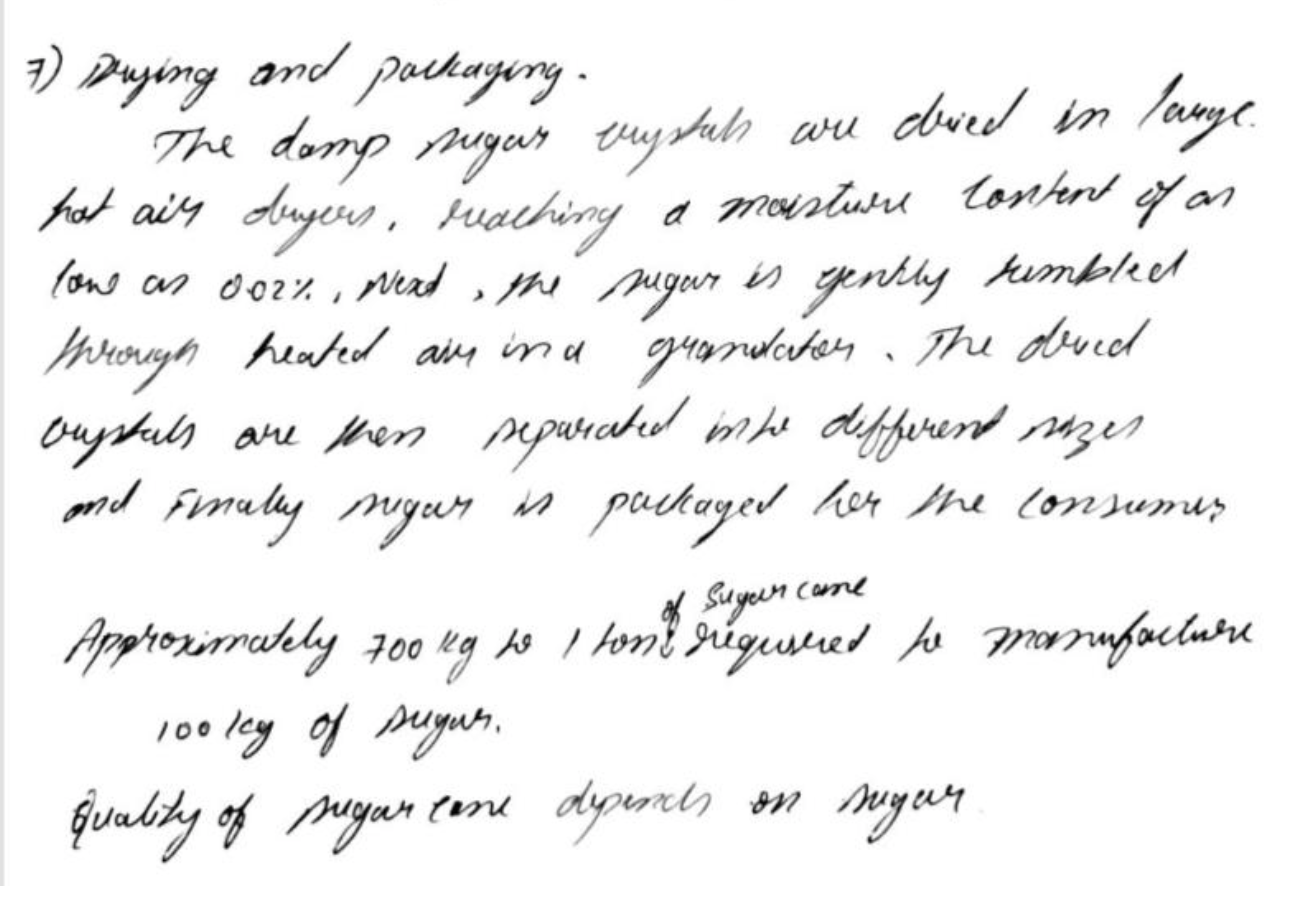 7) Drying and packaging.
The damp sugar crystals are dried in large
hot air dryers, reaching a moisture content of as
low as 0.02%, Next, the sugar is gently tumbled
through heated air in a granulator. The dried
crystals are then separated into different sizes
and Finally sugar is packaged for the consumer,
of Sugar cane
Approximately 700 kg to 1 ton required to manufacture
100 kg of sugar.
Quality of sugar cane depends on sugar